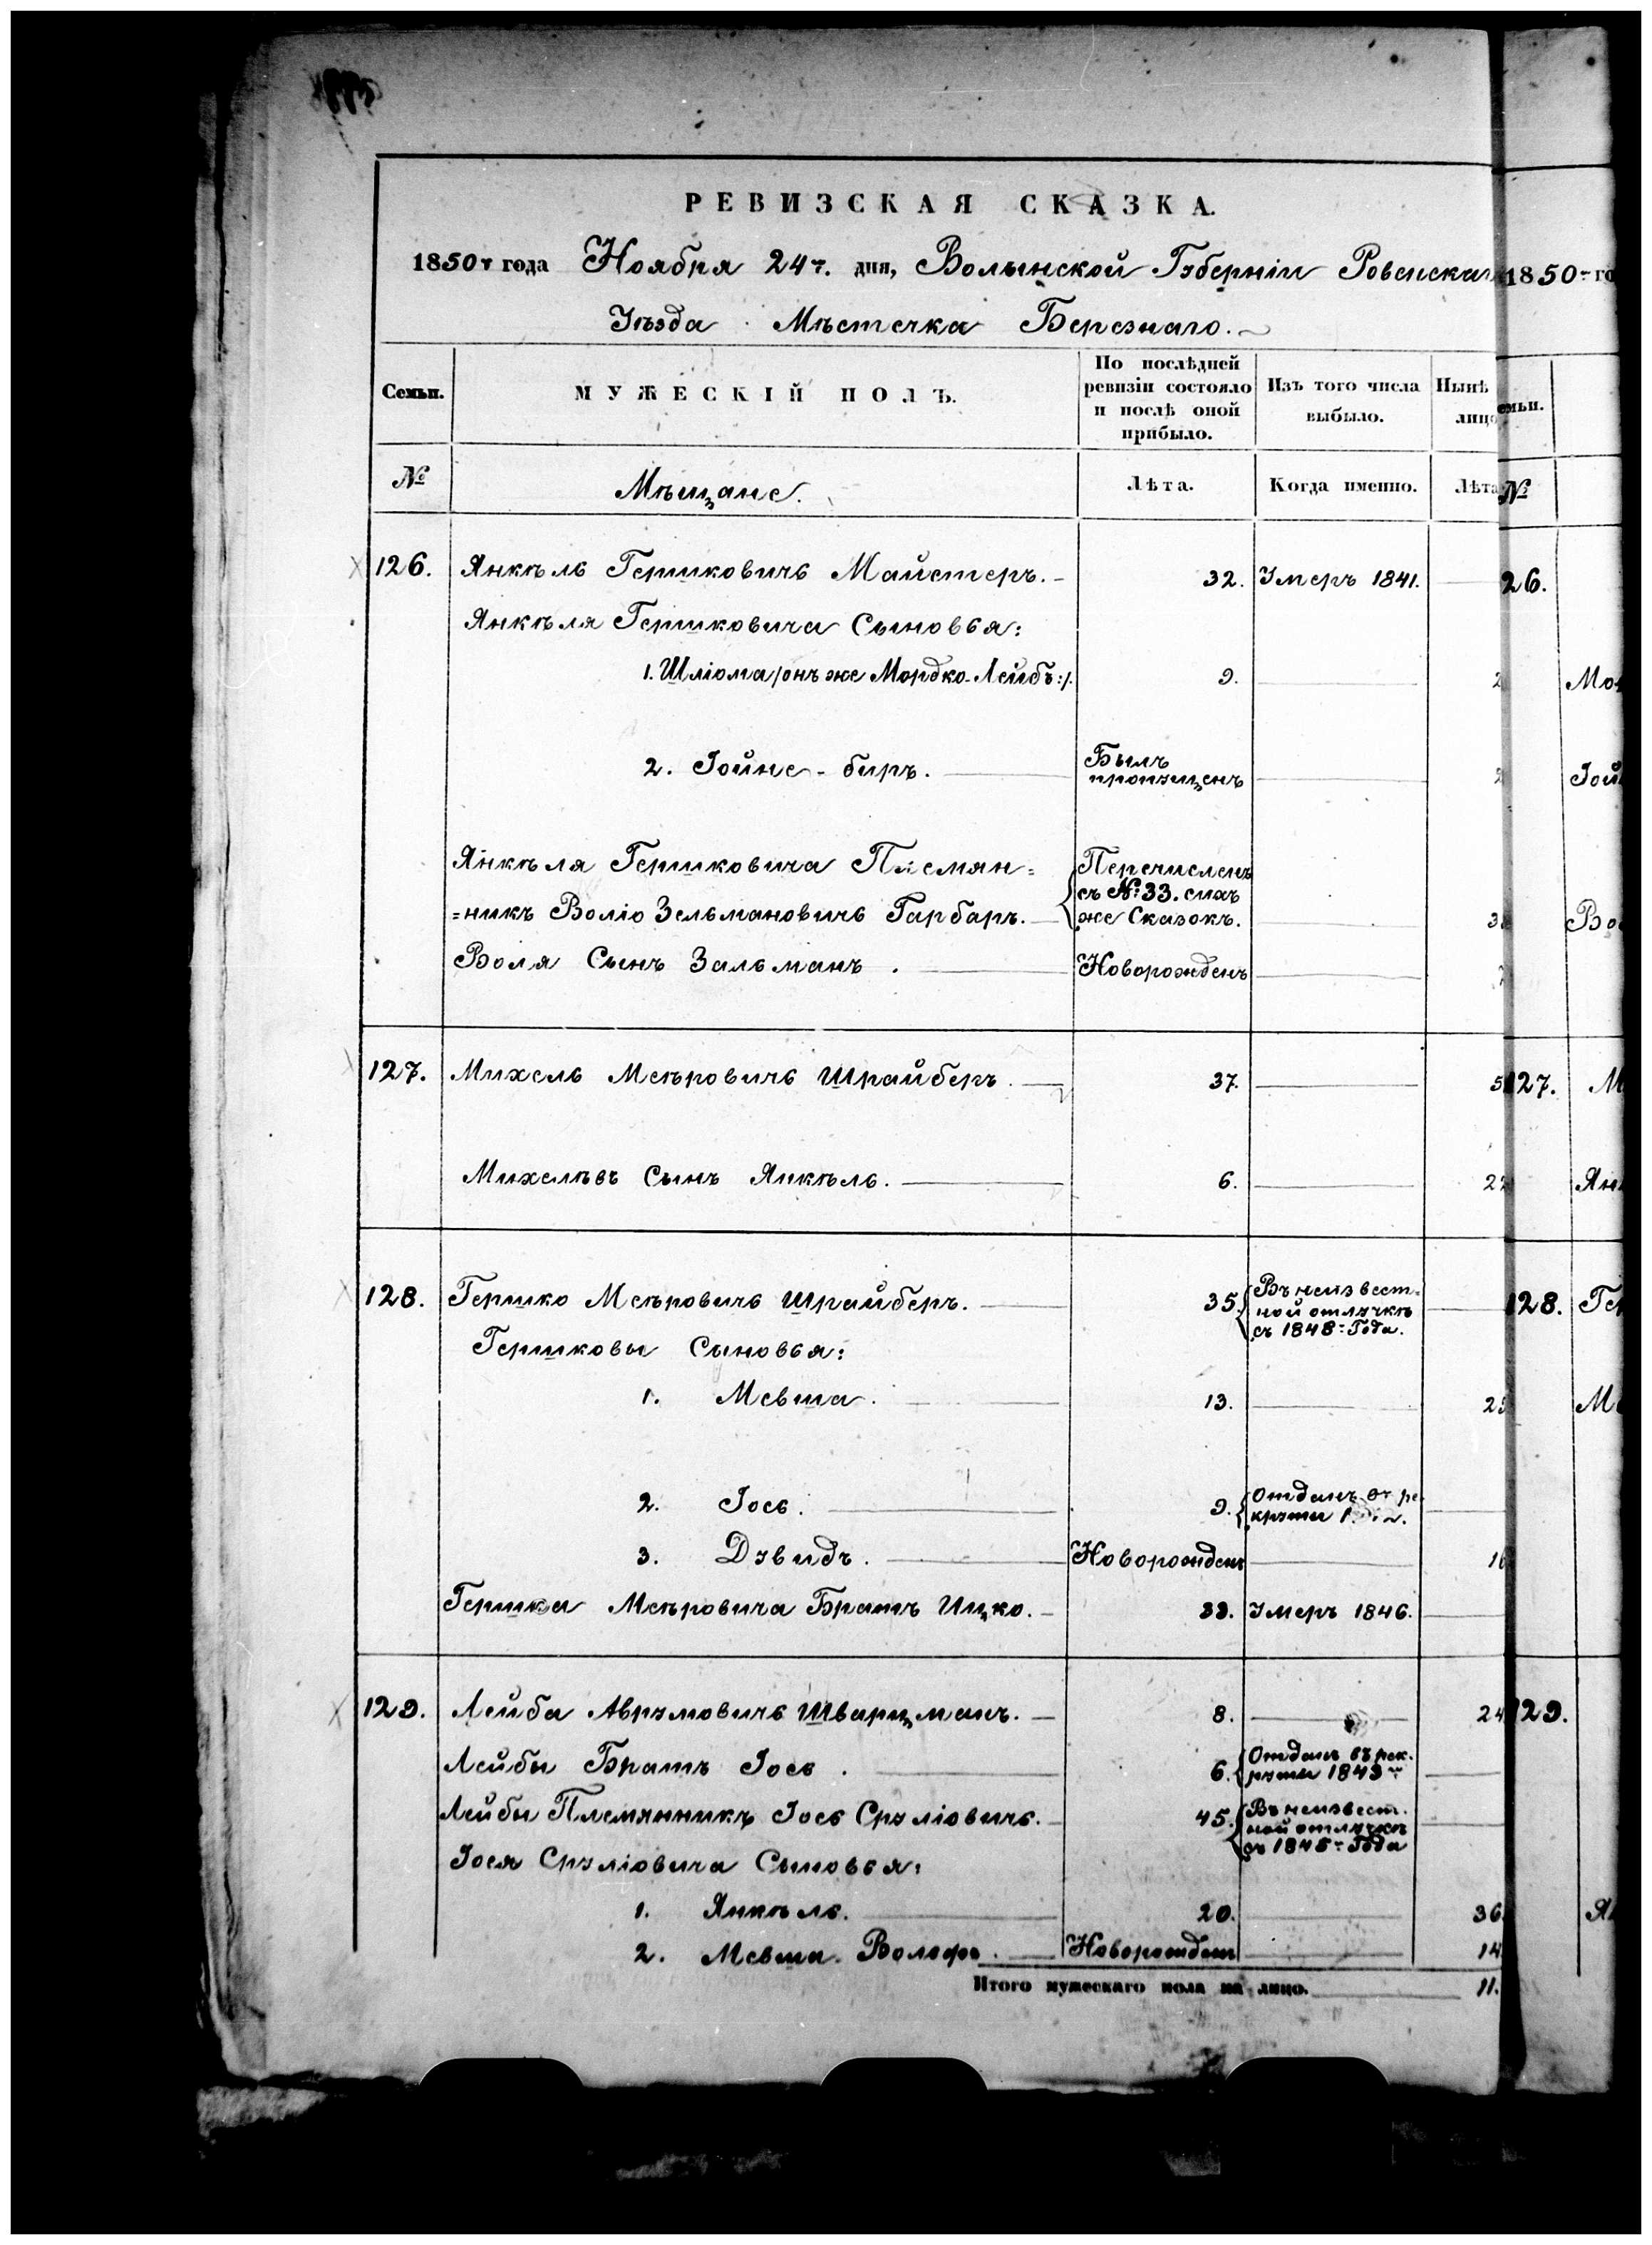 РЕВИЗСКАЯ СКАЗКА.
1850 г года Ноября 24 г. дня, Волынской Гѹберніи Ровенска 1850 г го
Уѣзда Мѣстечка Березнаго.
Семьи. МУЖЕСКІЙ ПОЛЪ. По послѣдней ревизіи состояло и послѣ оной прибыло. Изъ того числа выбыло. Нынѣ лицо емьи.
№ Мѣщане. Лѣта. Когда именно. Лѣта №
126. Янкѣль Гершковичь Майстеръ. 32. Умеръ 1841. 26.
Янкѣля Гершковича Сыновья:
1. Шліома /онъ же Мордко-Лейбъ:/. 9. 2 Мо
2. Іойне-биръ. Былъ пропущенъ 2 Іой
Янкѣля Гершковича Племян=
=никъ Воліо Зельмановичь Гарбаръ. Перечисленъ съ №: 33. сихъ же Сказокъ. 3 Во
Воля Сынъ Зальманъ. Новорожденъ
127. Михель Меѣровичь Шрайберъ. 37. 5 127. М
Михелѣвъ Сынъ Янкѣль. 6. 22 Ян
128. Гершко Меѣровичь Шрайберъ. 35. Въ неизвест=
ной отлучкѣ
съ 1848 г Года. 128. Ге
Гершковы Сыновья:
1. Мевша. 13. 2 М
2. Іось. 9. Отданъ въ ре
круты
3. Дувидъ. Новорожденъ 1
Гершка Меѣровича Братъ Ицко. 33. Умеръ 1846.
129. Лейба Аврумовичь Шварцманъ. 8. 24 129.
Лейбы Братъ Іось. 6. Отданъ въ рек.
руты 1843 г
Лейбы Племянникъ Іось Сруліовичь. 45. Въ неизвест.
ной отлучкѣ
съ 1845 г Года
Іося Сруліовича Сыновья:
1. Янкѣль. 20. 36. Я
2. Мевша-Вольфъ. Новорожденъ 14
Итого мужескаго пола на лицо. 11.